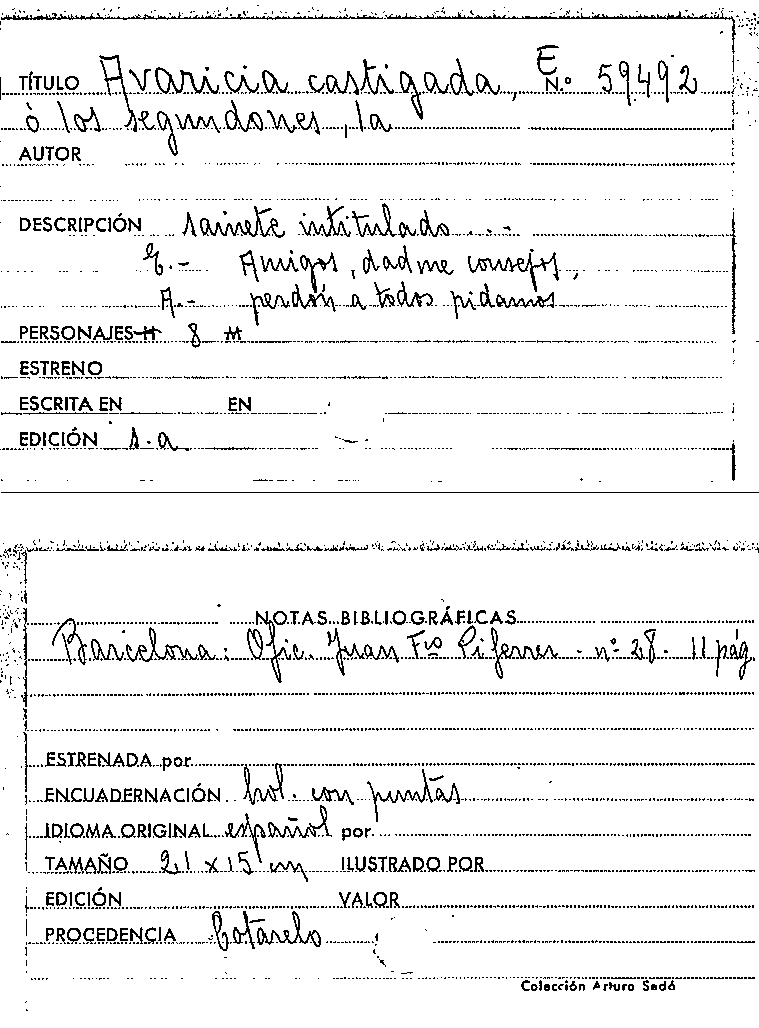 TÍTULO Avaricia castigada, E N.º 59492
ò los segundones, la
AUTOR
DESCRIPCIÓN sainete intitulado . . -
E.- Amigos, dadme consejos,
A.- perdón a todos pidamos
PERSONAJES H 8 M
ESTRENO
ESCRITA EN EN
EDICIÓN s.a
NOTAS BIBLIOGRÁFICAS
Barcelona: Ofic. Juan Fco Piferrer - nº 28 - 11 pág.
ESTRENADA por
ENCUADERNACIÓN hol. con puntas
IDIOMA ORIGINAL español por
TAMAÑO 21 x 15 cm ILUSTRADO POR
EDICIÓN VALOR
PROCEDENCIA Cotarelo
Colección Arturo Sedó